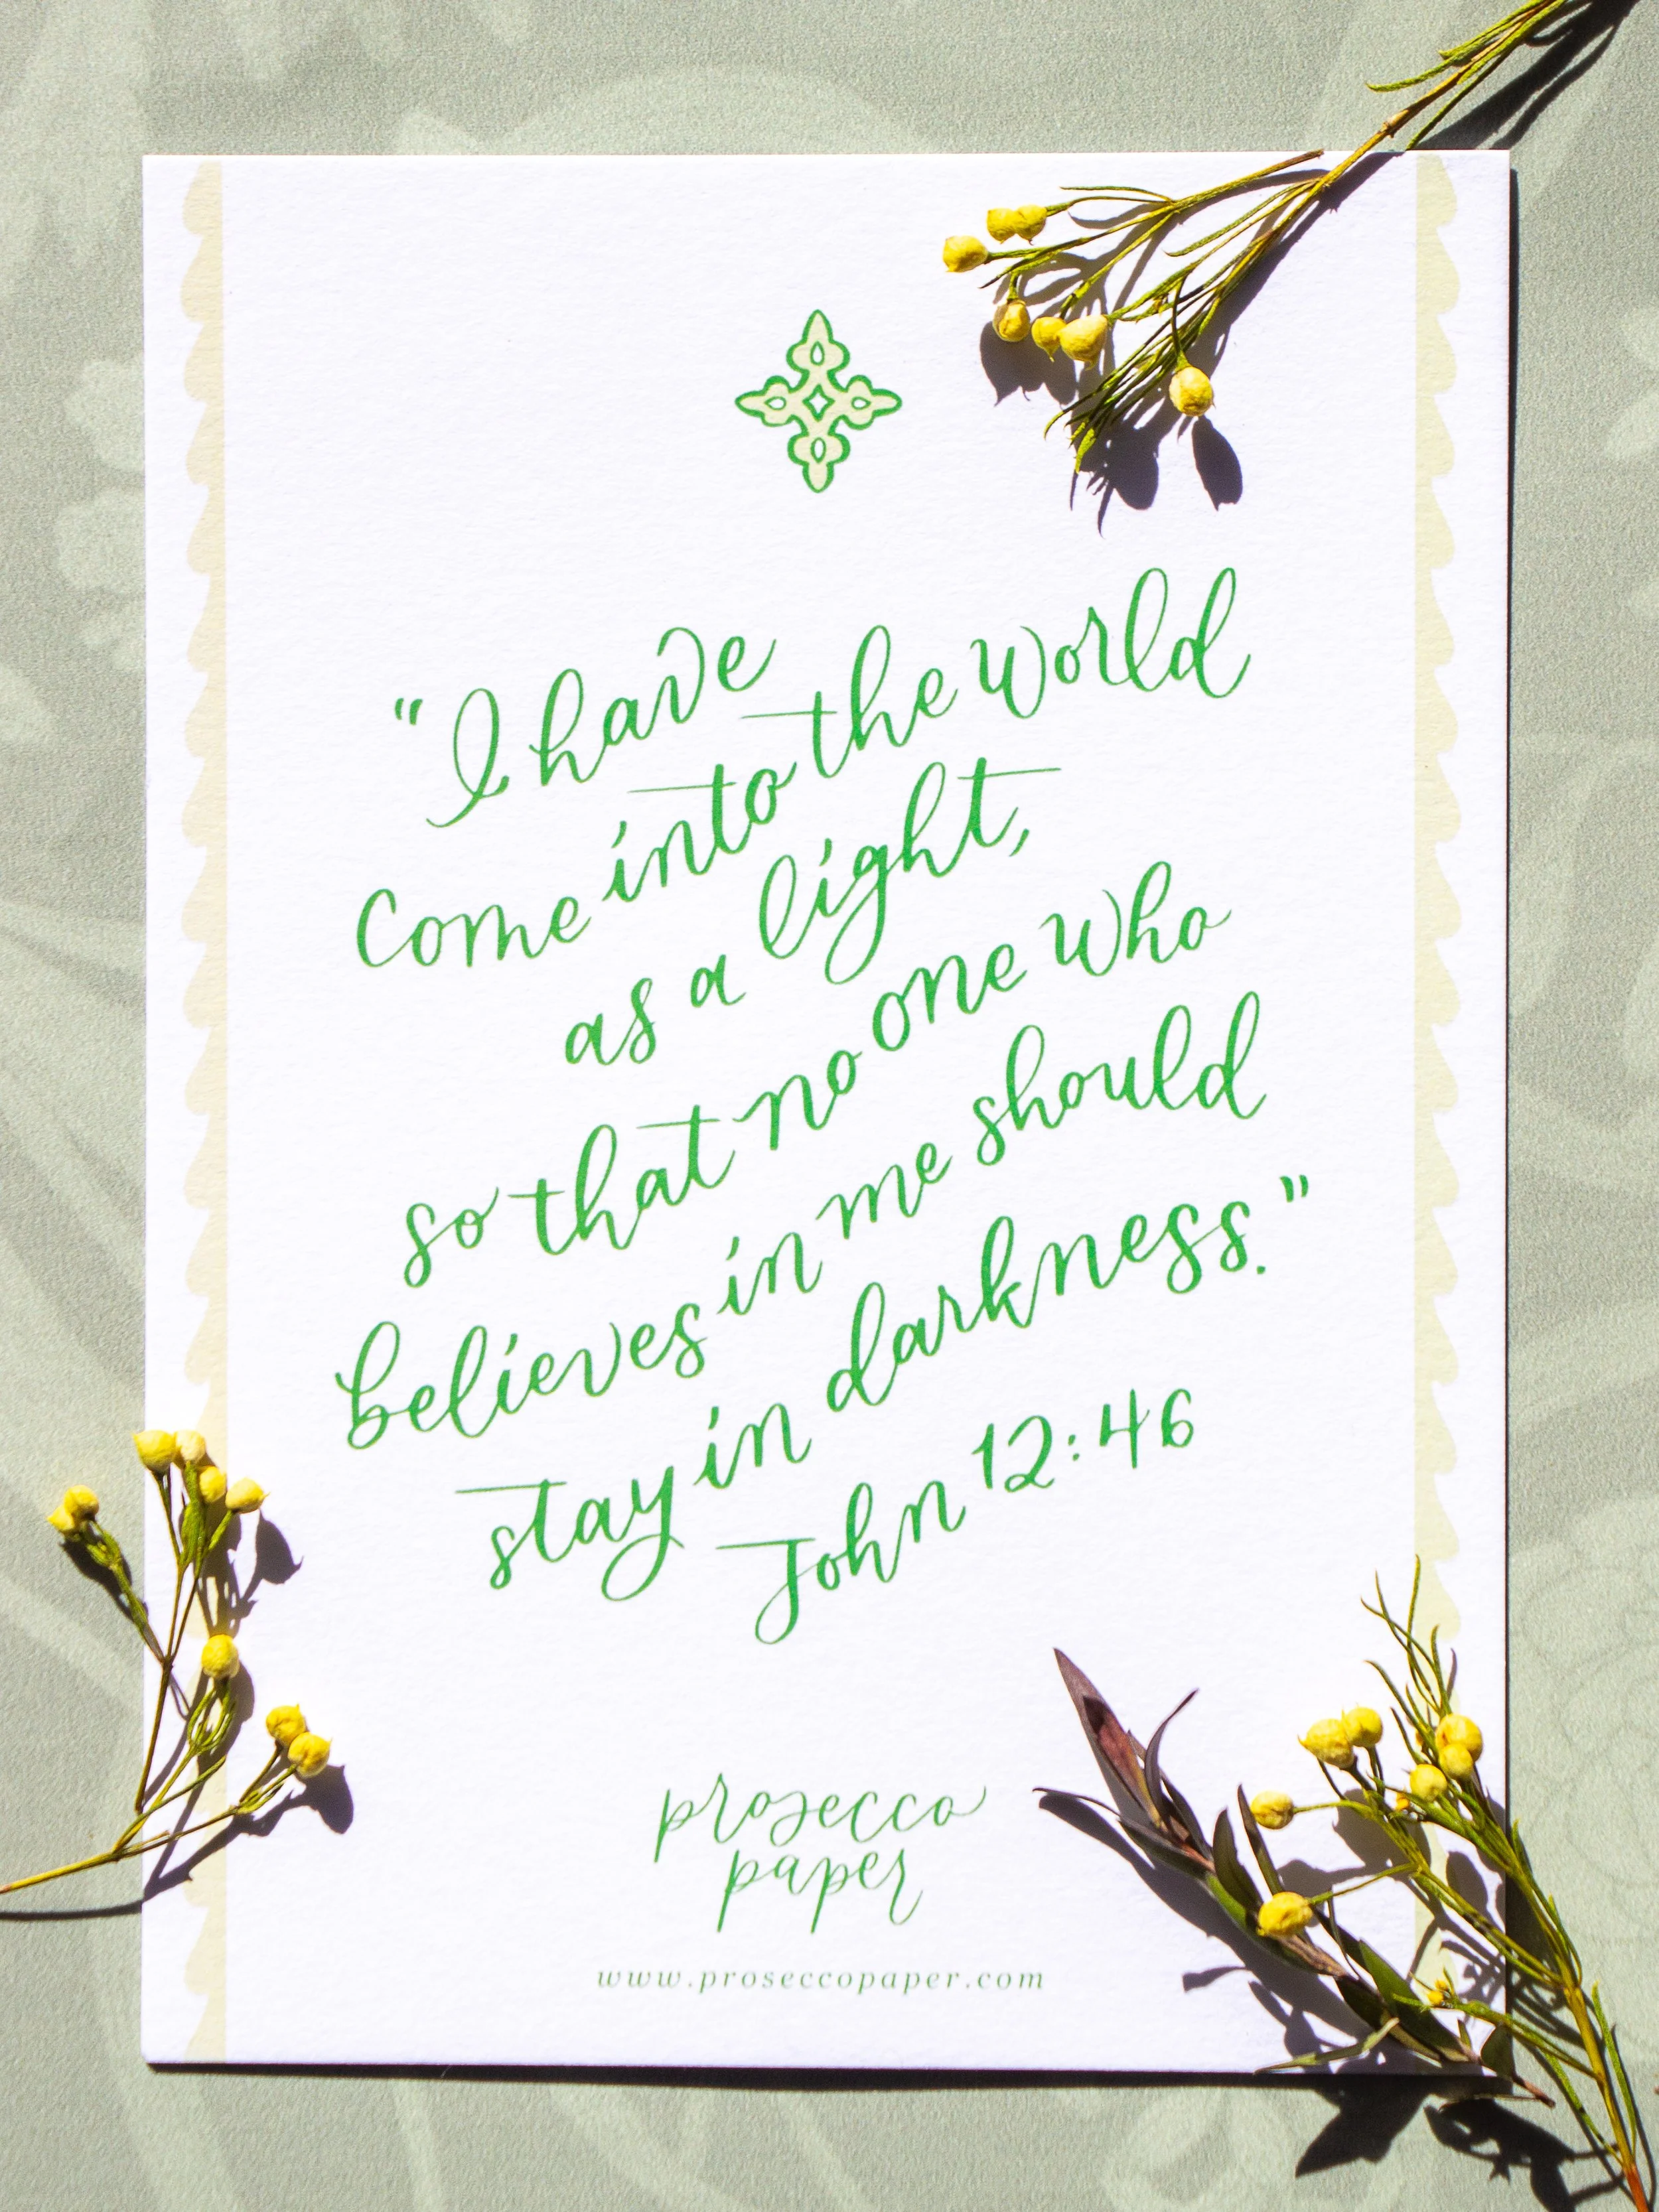 "I have
come into the world
as a light,
so that no one who
believes in me should
stay in darkness."
John 12:46
prosecco
paper
www.proseccopaper.com